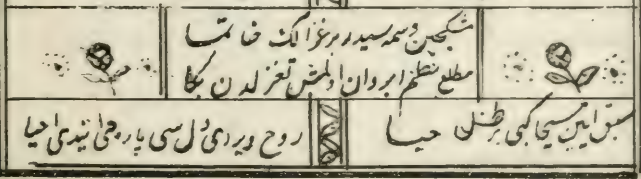 مشکچین وسمه سیدر بر غزالک خانما
مطلع نظم ابروان اولمش تغزلدن بکا
سبق ایلر مسیحا کبی بر طفلی حیا
روح ویردی دل سی یا روحی ایتدی احیا